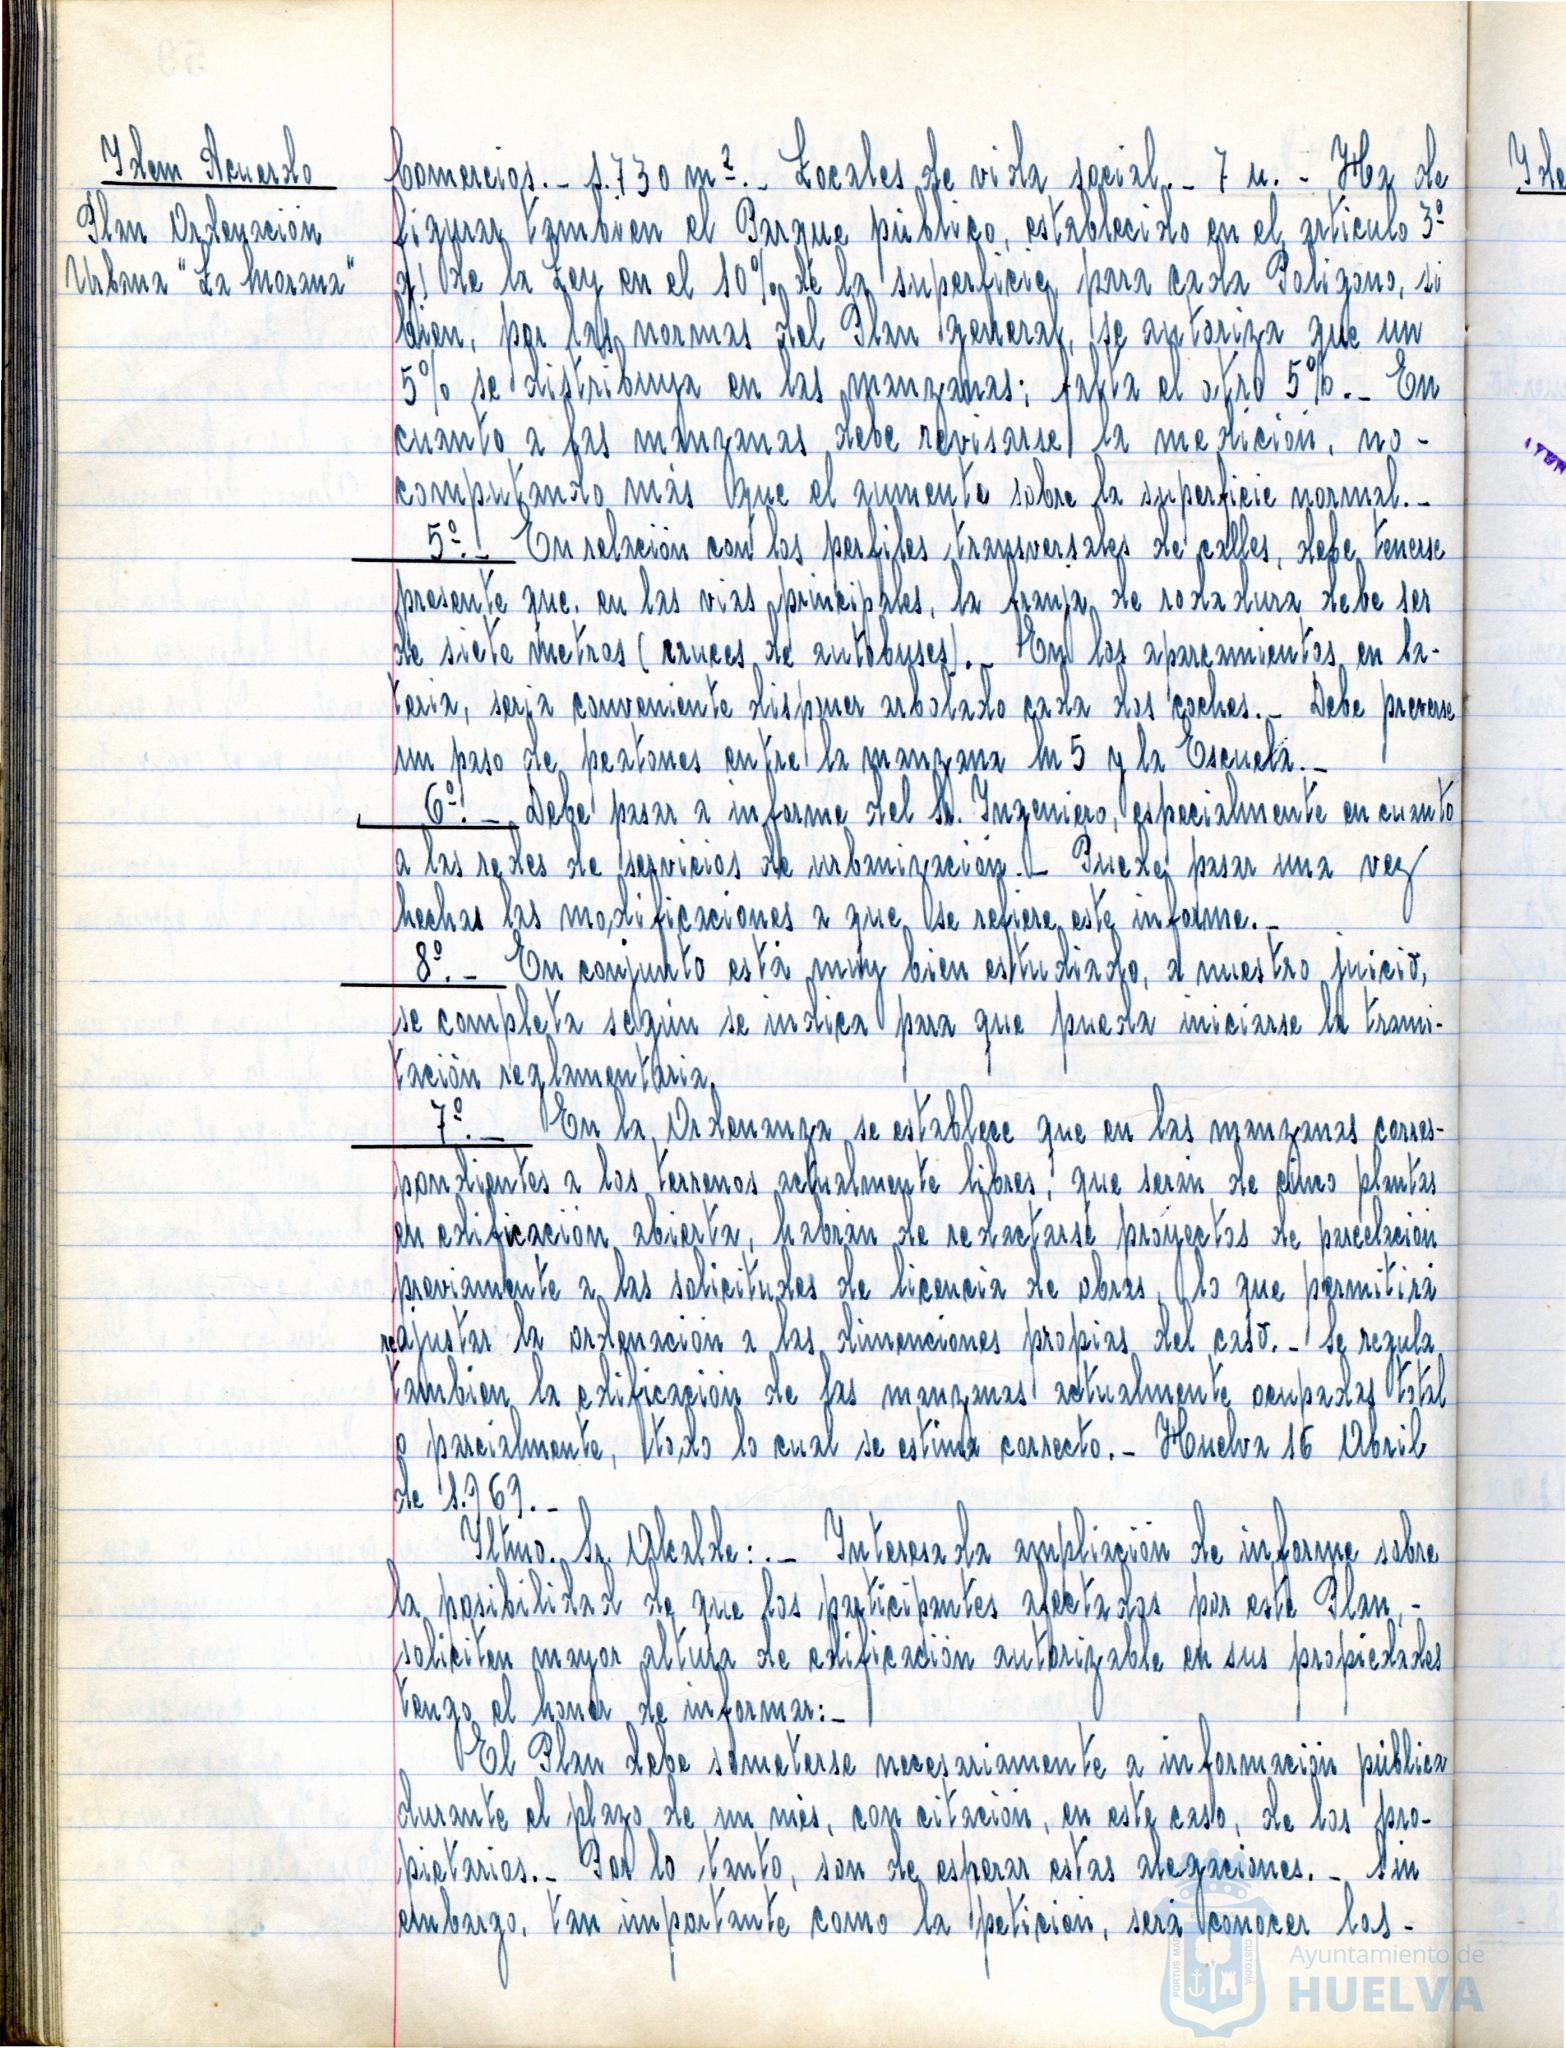 Idem Acuerdo
Plan Ordenación
Urbana "La Morana"
Comercios.- 1.730 m².- Locales de vida social.- 7 u.- Ha de
figurar tambien el Parque público, establecido en el articulo 3º
de la Ley en el 10% de la superficie para cada Poligono, si
bien, por las normas del Plan general, se autoriza que un
5% se distribuya en las manzanas; falta el otro 5%.- En
cuanto a las manzanas debe revisarse la medición, no-
computando más que el aumento sobre la superficie normal.-
5º.- En relación con los perfiles transversales de calles, debe tenerse
presente que, en las vias principales, la franja de rodadura debe ser
de siete metros (cruces de autobuses).- En los aparcamientos en ba-
teria, seria conveniente disponer arbolado cada dos coches.- Debe preverse
un paso de peatones entre la manzana M5 y la Escuela.-
6º.- Debe pasar a informe del Sr. Ingeniero, especialmente en cuanto
a las redes de servicios de urbanización.- Puede pasar una vez
hechas las modificaciones a que se refiere este informe.-
8º.- En conjunto está muy bien estudiado, a nuestro juicio,
se completa según se indica para que pueda iniciarse la trami-
tación reglamentaria.
7º.- En la Ordenanza se establece que en las manzanas corres-
pondientes a los terrenos actualmente libres, que serán de cinco plantas
en edificación abierta, habrán de redactarse proyectos de parcelación
previamente a las solicitudes de licencia de obras, lo que permitirá
reajustar la ordenación a las dimenciones propias del caso.- Se regula
tambien la edificación de las manzanas actualmente ocupadas total
o parcialmente, todo lo cual se estima correcto.- Huelva 16 Abril
de 1.969.-
Iltmo. Sr. Alcalde:.- Interesada ampliación de informe sobre
la posibilidad de que los participantes afectados por este Plan,-
soliciten mayor altura de edificación autorizable en sus propiedades
tengo el honor de informar:-
El Plan debe someterse necesariamente a información pública
durante el plazo de un mes, con citación, en este caso, de los pro-
pietarios.- Por lo tanto, son de esperar estas alegaciones.- Sin
embargo, tan importante como la petición, será conocer los-
Ayuntamiento de
HUELVA
PORTUS MARIS
CUSTODIA